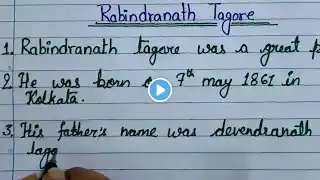 Rabindranath Tagore
1. Rabindranath tagore was a great p
2. He was born on 7th may 1861 in
Kolkata.
3. His father's name was devendranath
tago